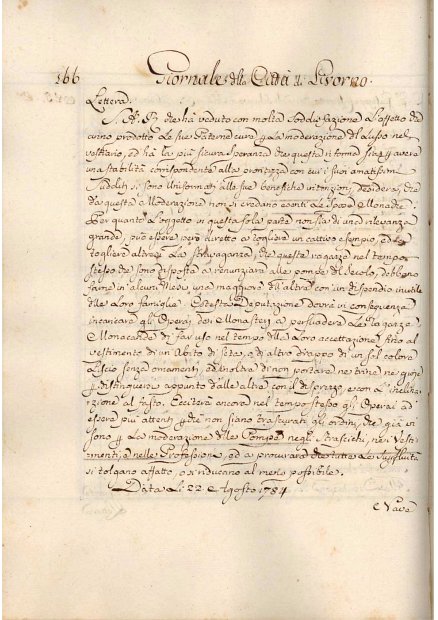 166 Giornale della Città di Livorno.
Lettera.
S. A. R. che ha veduto con molta Soddisfazione l'affetto che
avino prodotto le sue Paterne cure p la moderazione del Lusso nel
vestiario, ed ha la più sicura speranza che questa riforma sia p avere
una stabilità corrispondente alla prontezza con cui i suoi amatissimi
Sudditi si sono uniformati alle sue benefiche intenzioni, desidera, che
da questa Moderazione non si credano esenti le Spose Monache
Per quanto l'oggetto in questa sola parte non sia di una rilevanza
grande, può essere però diretto a togliere un cattivo esempio, ed a
togliere altresì la stravaganza, che queste ragazze nel tempo
stesso che sono disposte a renunziare alle pompe del Secolo, debbono
farne in alcuni Mesi una maggiore dell'altre con un dispendio inutile
delle Loro famiglie. Cotesta Deputazione dovrà in conseguenza
incaricare gli Operai dei Monasteri a persuadere le ragazze
Monacande di far uso nel tempo della Loro accettazione fino al
vestimento di un Abito di Seta, o di altro drappo di un sol colore
Liscio senza ornamenti, ed inoltre di non portare nè trine nè gioje
p distinguersi appunto dalle altre con il disprezzo, e con
al fasto. Ecciterà ancora nel tempo stesso gli Operai ad
essere più attenti p che non siano trascurati gli ordini, che già vi
sono p la moderazione delle Pompe negli Strascichi, nei Vesti-
menti, e nelle Professioni, ed a procurare che tutte le superfluità
si tolgano affatto, o si riducano al meno possibile.
Data Li: 22 Agosto 1784